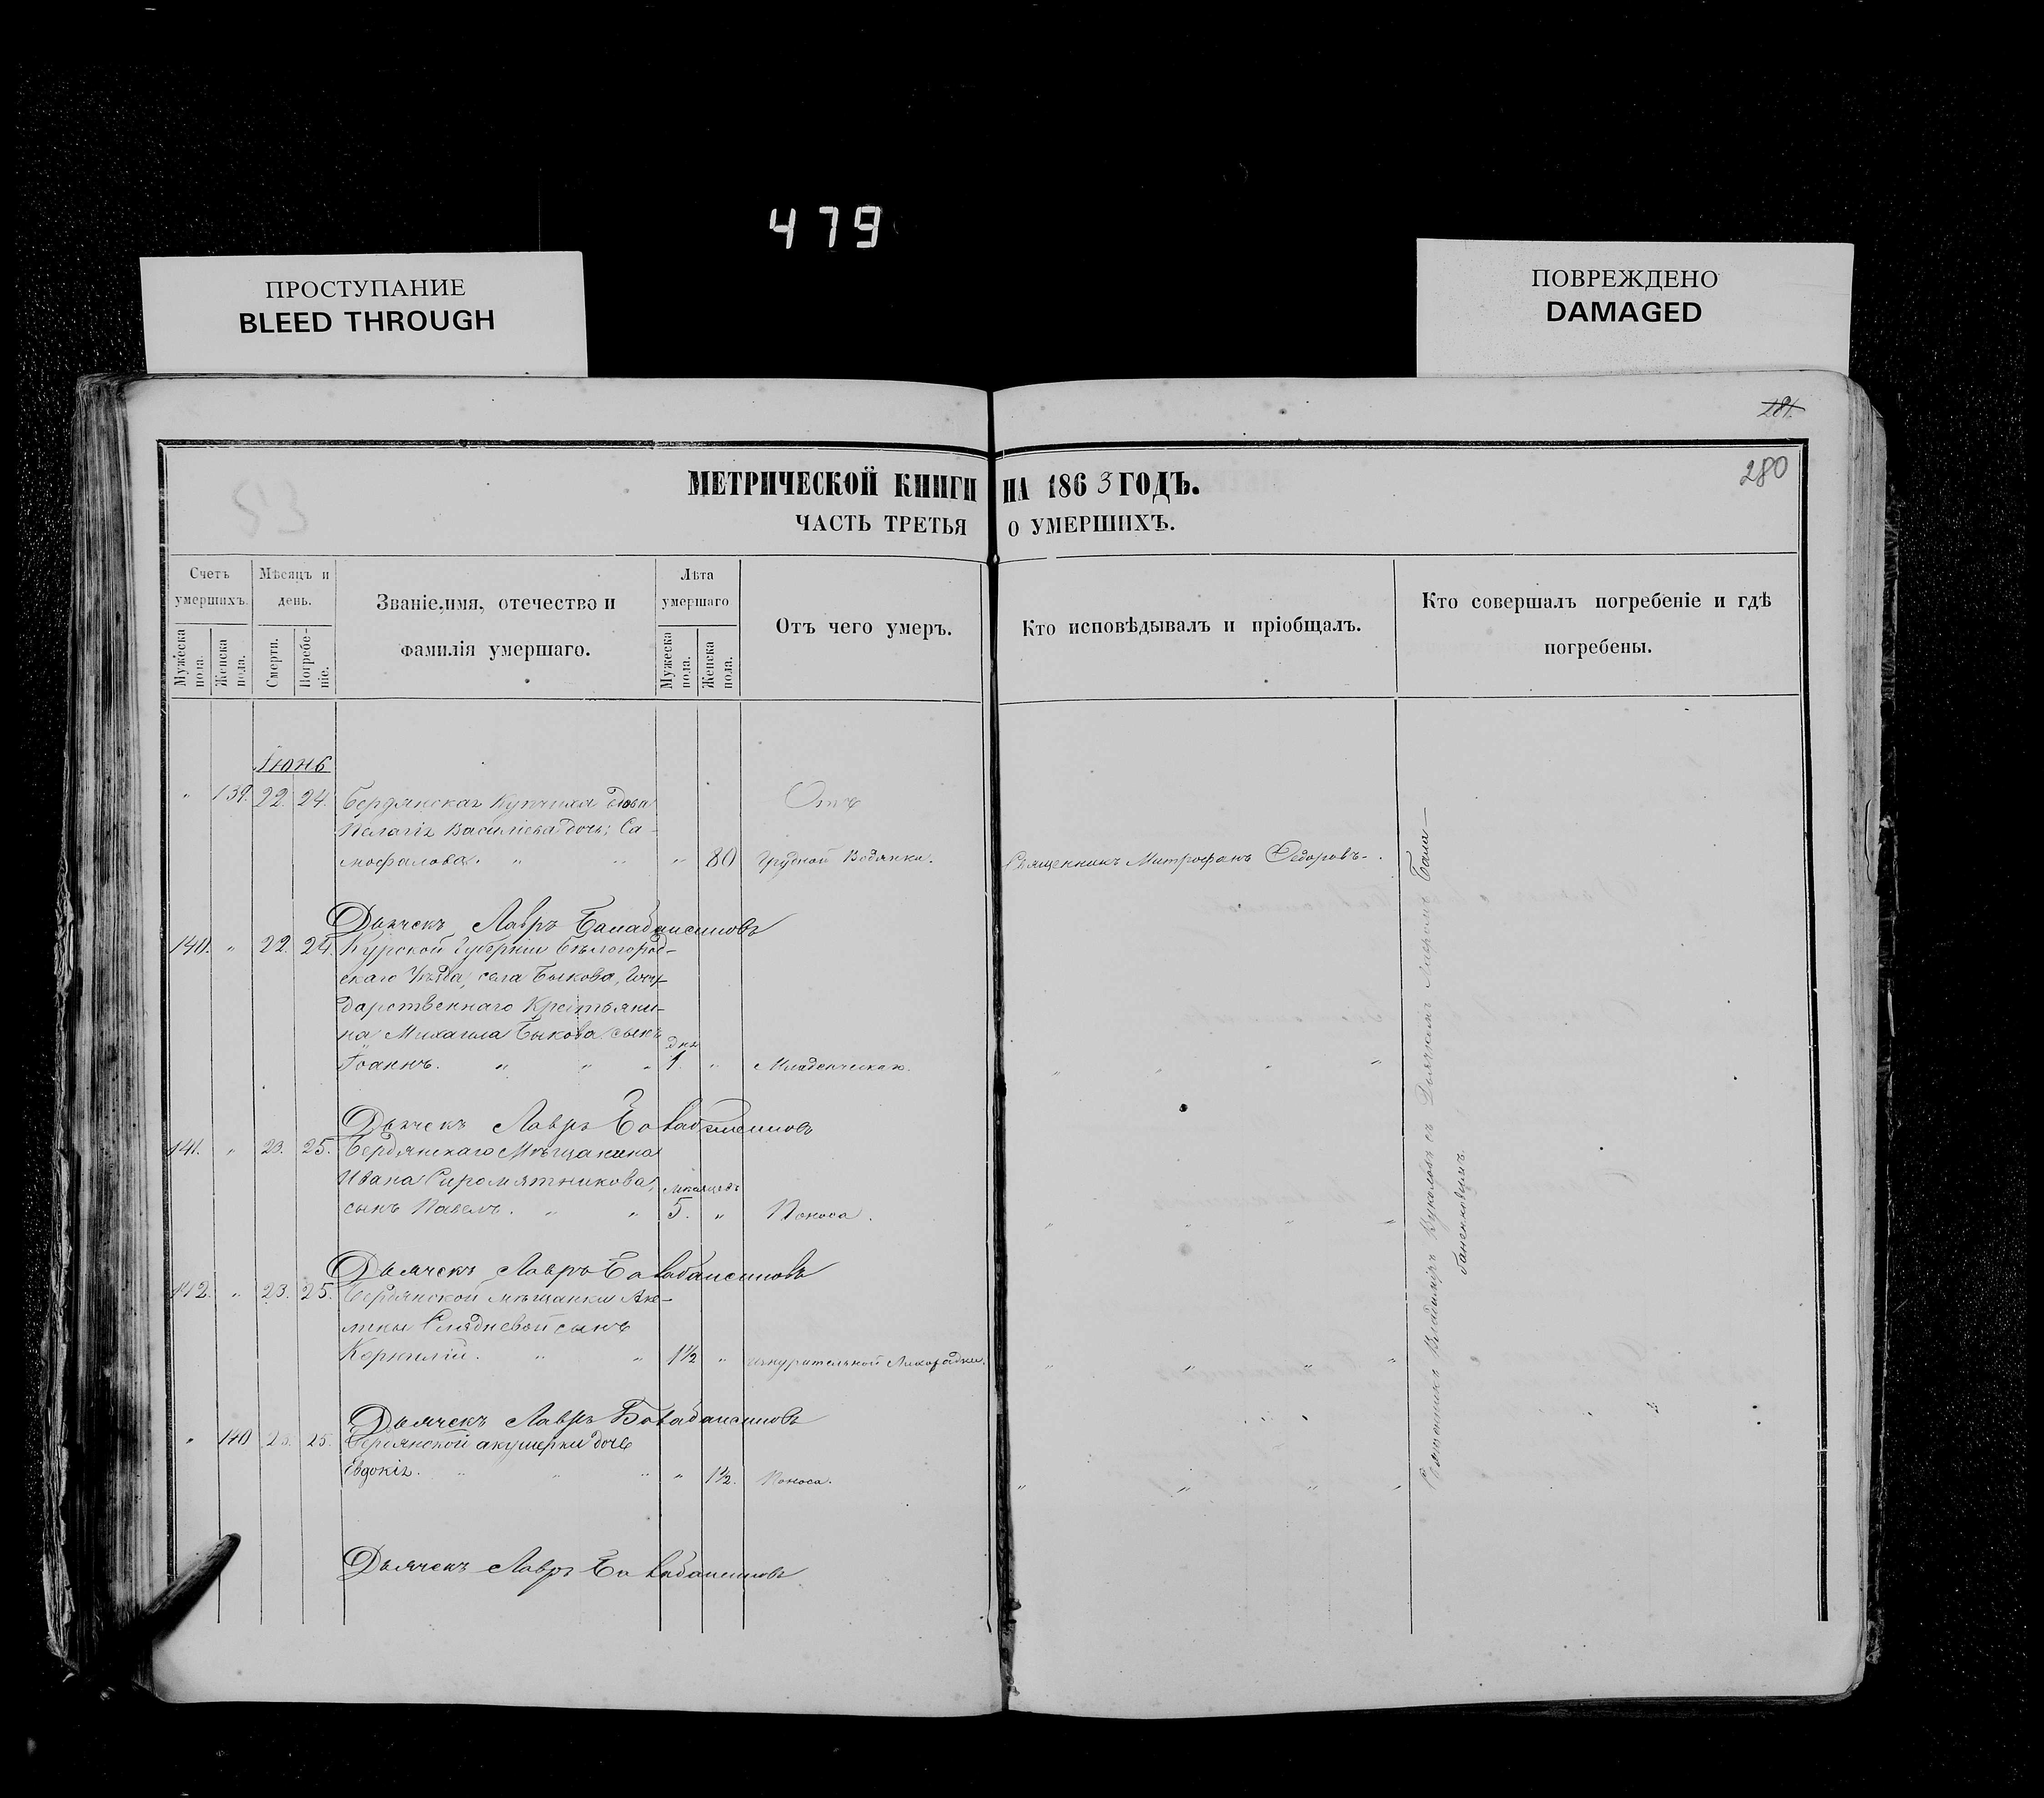 479
ПРОСТУПАНИЕ
BLEED THROUGH
ПОВРЕЖДЕНО
DAMAGED
281.
280
МЕТРИЧЕСКОЙ КНИГИ НА 1863 ГОДЪ.
ЧАСТЬ ТРЕТЬЯ О УМЕРШИХЪ.
Счетъ умершихъ.
Мужеска пола.
Женска пола.
Мѣсяцъ и день.
Смерти.
Погребеніе.
Званіе, имя, отечество и
фамилія умершаго.
Лѣта умершаго
Мужеска пола.
Женска пола.
Отъ чего умеръ.
Кто исповѣдывалъ и пріобщалъ.
Кто совершалъ погребеніе и гдѣ
погребены.
Іюнь
" 139. 22. 24. Бердянская Купчиха вдова Отъ
Пелагія Васильева дочь; Са-
мофалова. " " " 80 Грудной Водянки. Священникъ Митрофанъ Ѳедоровъ.
Дьячекъ Лавръ
140. " 22. 24. Курской Губерніи Бѣлогород-
скаго Уѣзда, села Быкова, Госу-
дарственнаго Крестьяни-
на Михаила Быкова сынъ
дня
Іоаннъ. " " " 1. " Младенческая. " " " "
Дьячекъ Лавръ
141. " 23. 25. Бердянскаго Мѣщанина
Ивана Сиромятникова, мѣсяцевъ
сынъ Павелъ. " " 5. " Поноса. " " " "
Дьячекъ Лавръ
142. " 23. 25. Бердянской мѣщанки
сынъ
Корнилій. " " 1½ " изнурительной Лихорадки. " " " "
Дьячекъ Лавръ
" 140 23. 25. Бердянской акушерки дочь
Евдокія. " " " " 1½. Поноса. " " " "
Дьячекъ Лавръ
Священникъ Владиміръ съ Дьячкомъ Лавромъ